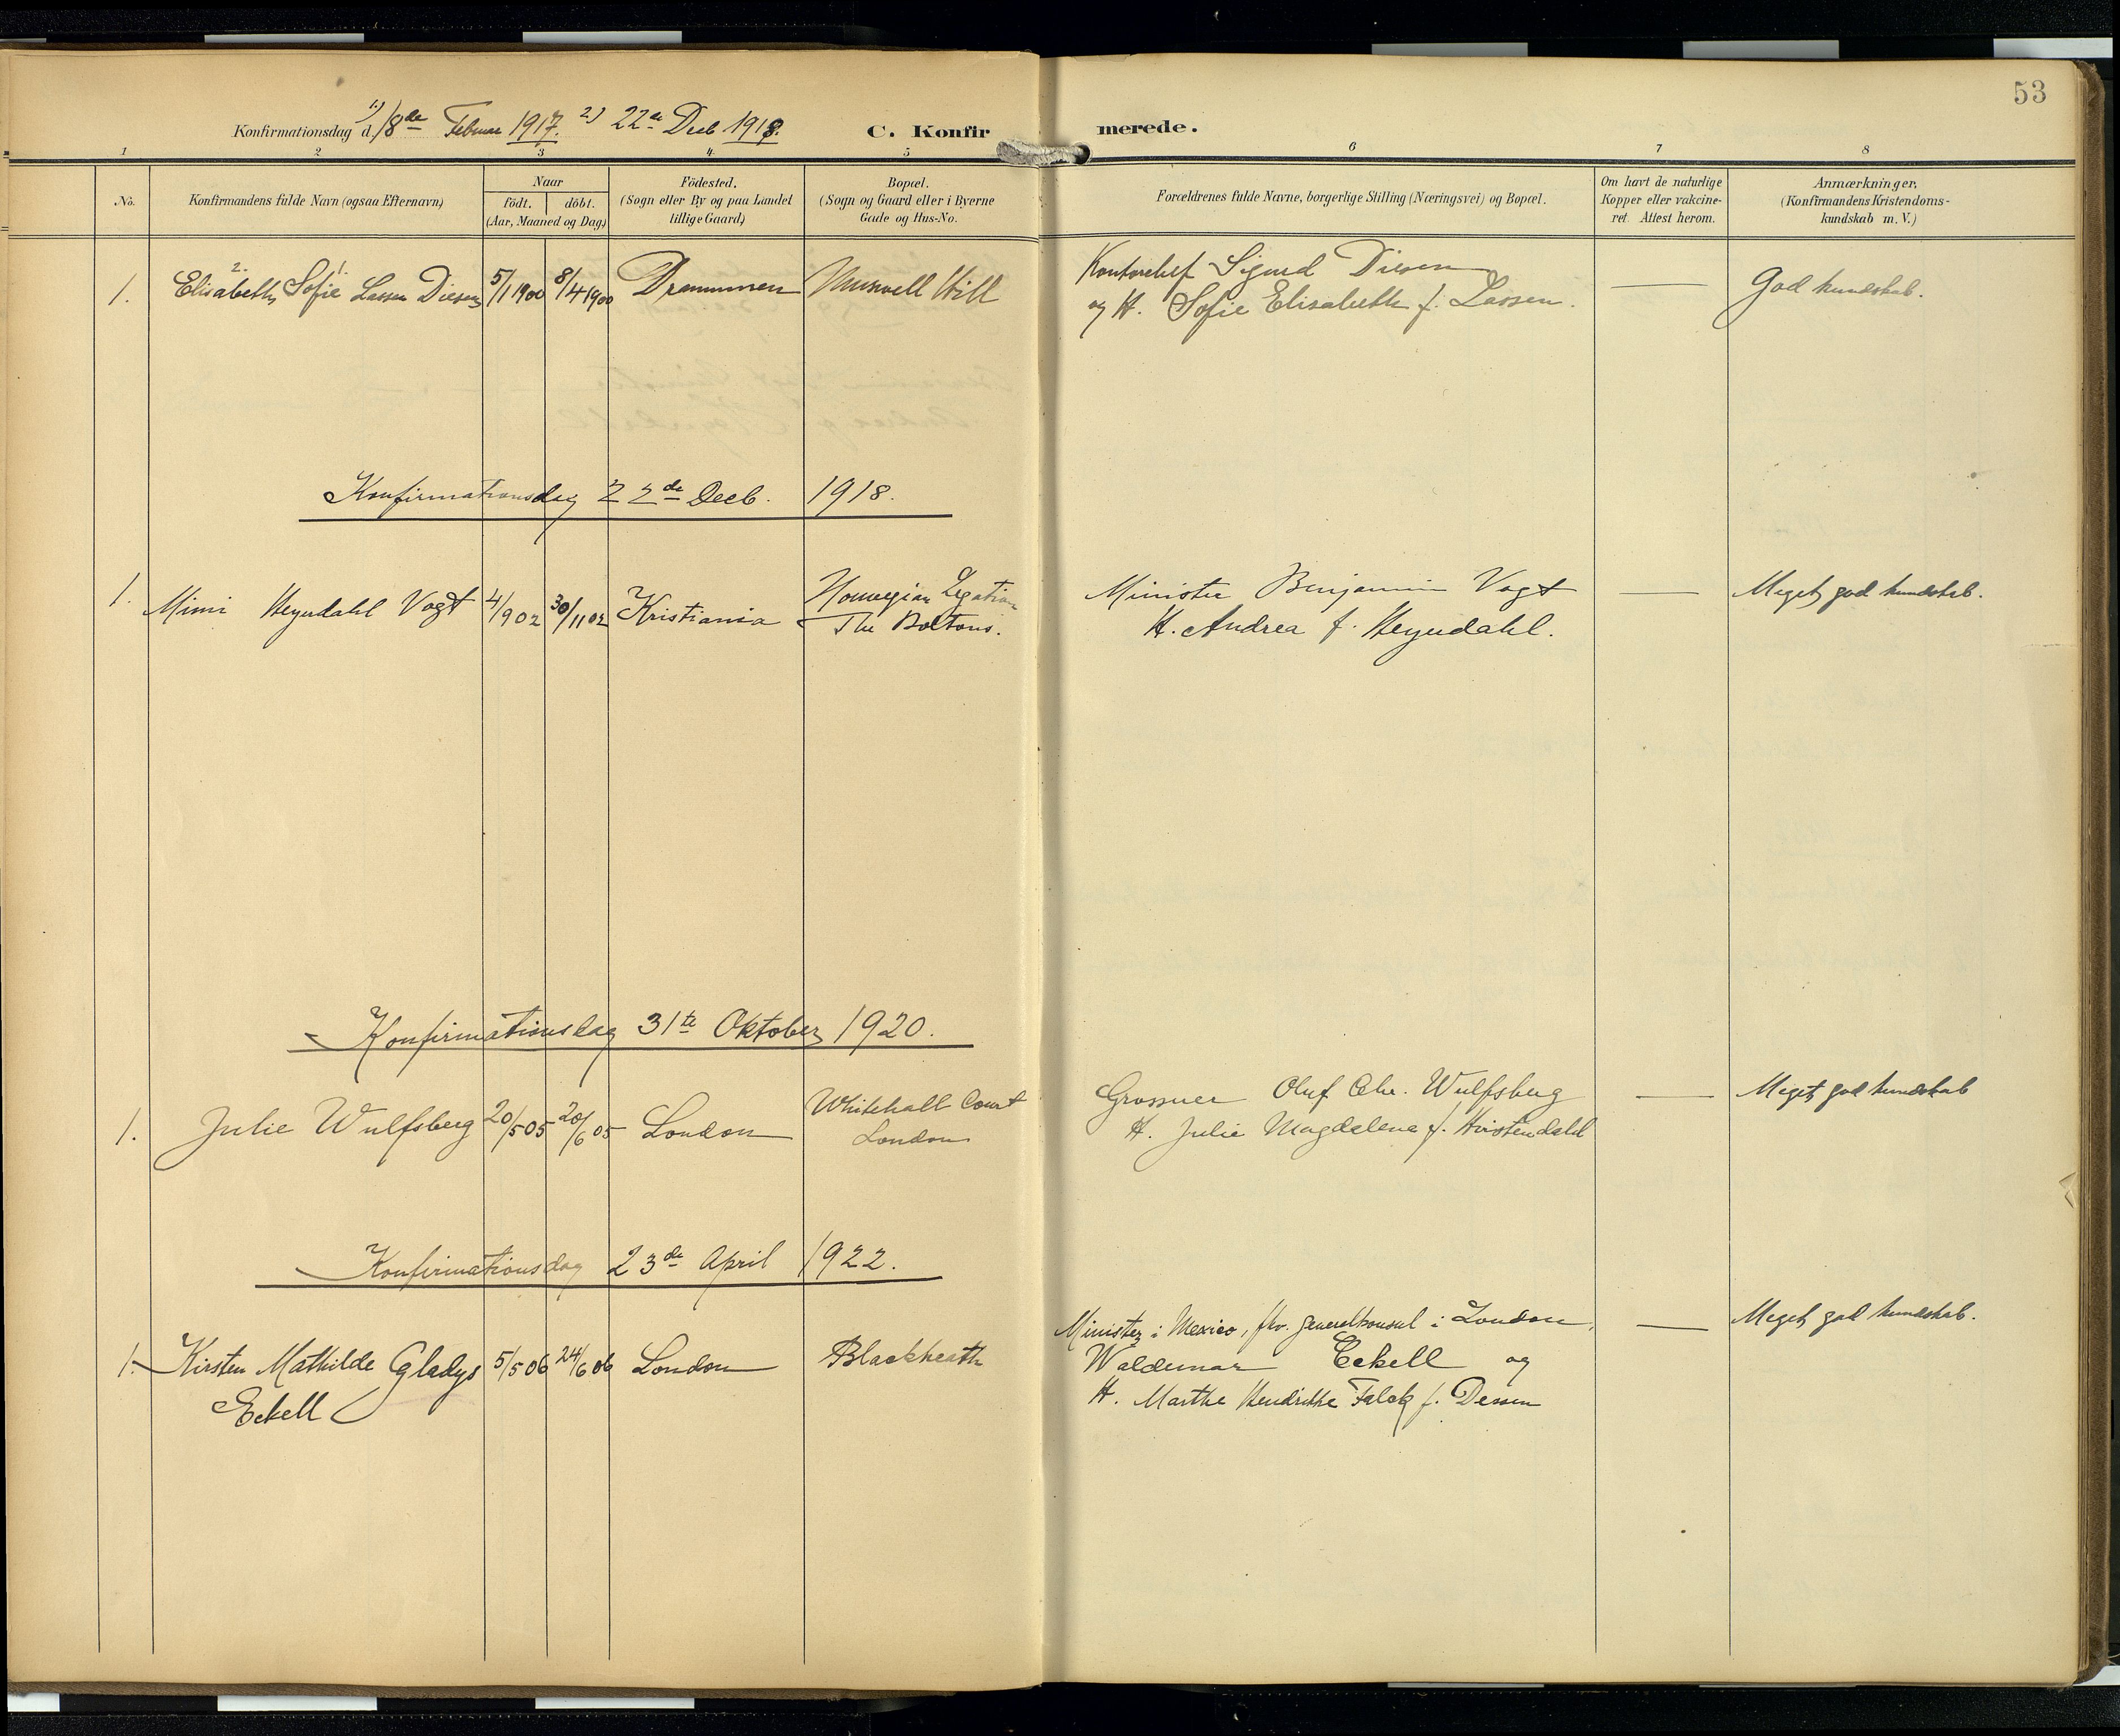 53
Konfirmationsdag d. 1) 18de Februar 1917. 2) 22de Decb 1918.
C. Konfirmerede.
1 2 3 4 5 6 7 8
No.
Konfirmandens fulde Navn (ogsaa Efternavn)
Naar
födt. döbt.
(Aar, Maaned og Dag)
Födested.
(Sogn eller By og paa Landet
tillige Gaard)
Bopæl.
(Sogn og Gaard eller i Byerne
Gade og Hus-No.
Forældrenes fulde Navne, borgerlige Stilling (Næringsvei) og Bopæl.
Om havt de naturlige
Kopper eller vakcine-
ret Attest herom.
Anmærkninger.
(Konfirmandens Kristendoms-
kundskab m. V.)
2. 1.
1. Elisabeth Sofie Lassen Diesen 5/1 1900 8/4 1900 Drammen Muswell Hill Kontorchef Sigurd Diesen — God kundskab.
og H. Sofie Elisabeth f. Lassen.
Konfirmationsdag 22de Decb. 1918.
1. Mimi Heyerdahl Vogt 4/9 02 30/11 02 Kristiania Norwegian Legation Minister Benjamin Vogt — Meget god kundskab.
The Boltons. H. Andrea f. Heyerdahl.
Konfirmationsdag 31te Oktober 1920.
1. Julie Wulfsberg 20/5 05 20/6 05 London Whitehall Court Grosserer Oluf Chr. Wulfsberg — Meget god kundskab
London H. Julie Magdalena f. Hvistendahl
Konfirmationsdag 23de April 1922.
1. Kirsten Mathilde Gladys 5/5 06 24/6 06 London Blackheath Minister i Mexico, fhv. generalkonsul i London, — Meget god kundskab.
Eckell Waldemar Eckell og
H. Marthe Hendrikke Falck f. Dessen